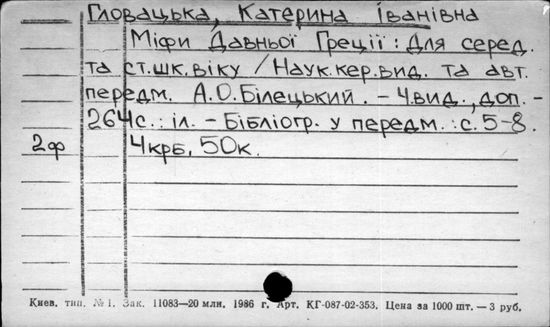 Гловацька, Катерина Іванівна
Міфи Давньої Греції : Для серед.
та ст.шк.віку / Наук.кер.вид. та авт.
передм. А.О.Білецький. – 4.вид., доп. –
264с. : іл. – Бібліогр. у передм. : с. 5-8.
2ф 4крб. 50к.
Киев. тип. № 1. Зак. 11083—20 млн. 1986 г. Арт. КГ-087-02-353. Цена за 1000 шт. — 3 руб.